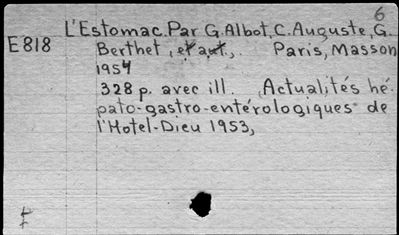 6
L'Estomac. Par G. Albot, C. Auguste, G.
E 818
Berthet, et aut., Paris, Masson
1954
328 p. avec ill. (Actualités hé-
pato-gastro-entérologiques de
l'Hotel-Dieu 1953,